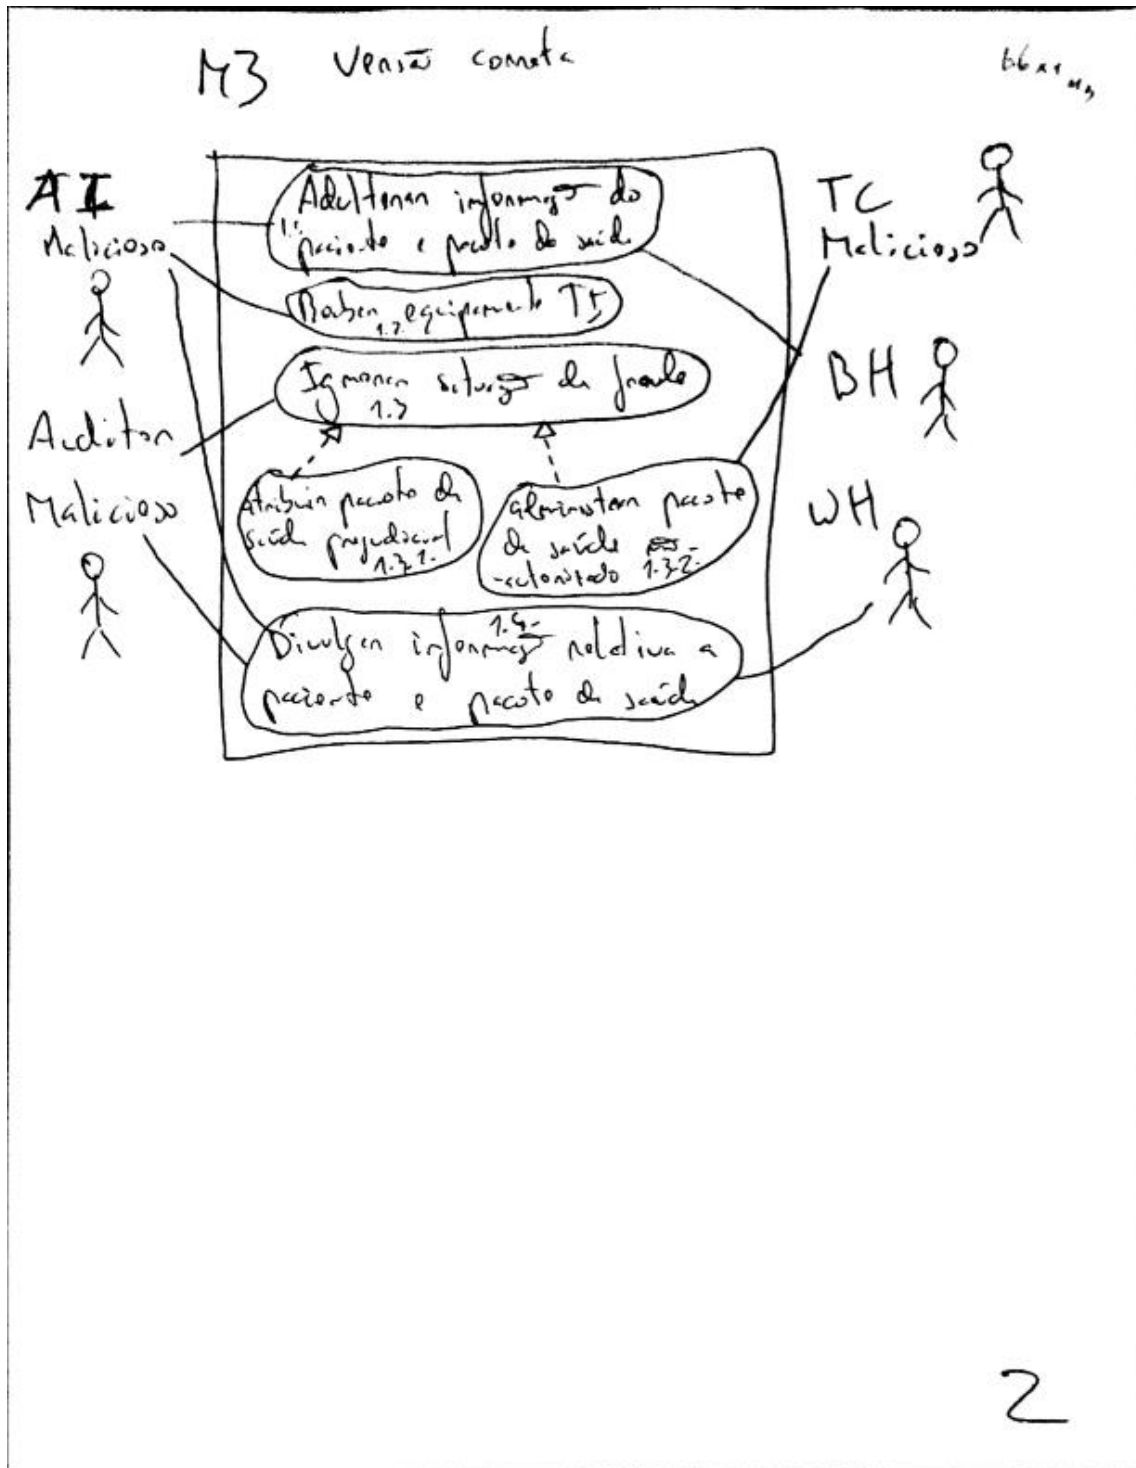 M3 Versão correta
AI
Malicioso
Auditor
Malicioso
Adulterar informação do
1.1 paciente e pacote de saúde
Roubar equipamento TI
1.2.
Ignorar situação de fraude
1.3
Atribuir pacote de
saúde prejudicial
1.3.1.
administrar pacote
de saúde
-autorizado 1.3.2.
1.4.
Divulgar informação relativa a
paciente e pacote de saúde
TC
Malicioso
BH
WH
2